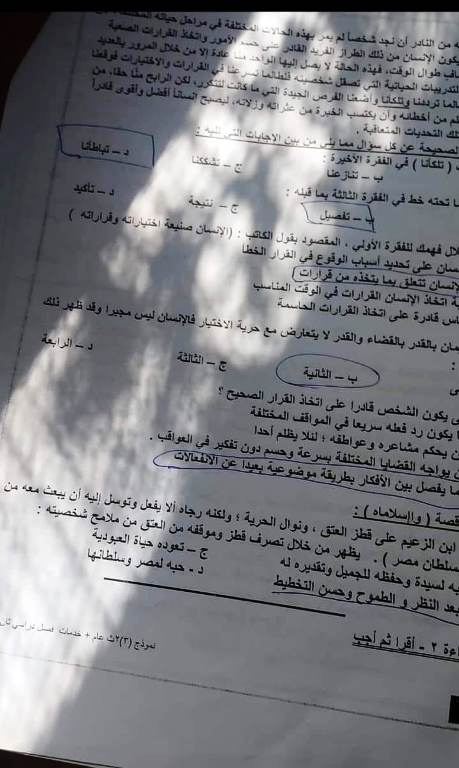 ه من النادر أن نجد شخصا لم يمر بهذه الحالات المختلفة في مراحل حياته المختلفة
يكون الإنسان من ذلك الطراز الفريد القادر على حسم الأمور واتخاذ القرارات الصعبة
طوال الوقت، فهذه الحالة لا يصل إليها الواحد منا عادة إلا من خلال المرور بالعديد
التدريبات الحياتية التي تصقل شخصيته فلطالما تسرعنا في القرارات والاختيارات فوقعنا
ترددنا وتلكأنا وأضعنا الفرص الجيدة التي ما كانت لتتكرر، لكن الرابح منا حقا، من
من أخطائه وأن يكتسب الخبرة من عثراته وزلاته، ليصبح إنسانا أفضل وأقوى قادرا
تلك التحديات المتعاقبة .
الصحيحة عن كل سؤال مما يلي من بين الإجابات التي تليه :
( تلكأنا ) في الفقرة الأخيرة :
ب – تنازعنا ج – تشككنا د – تباطأنا
ما تحته خط في الفقرة الثالثة بما قبله :
ب – تفصيل ج – نتيجة د – تأكيد
لال فهمك للفقرة الأولي ، المقصود بقول الكاتب : (الإنسان صنيعة اختياراته وقراراته )
سان على تحديد أسباب الوقوع في القرار الخطأ
لإنسان تتعلق بما يتخذه من قرارات
ة اتخاذ الإنسان القرارات في الوقت المناسب
اس قادرة على اتخاذ القرارات الحاسمة
مان بالقدر بالقضاء والقدر لا يتعارض مع حرية الاختيار فالإنسان ليس مجبرا وقد ظهر ذلك
:
ى ب – الثانية ج – الثالثة د – الرابعة
ى يكون الشخص قادرا على اتخاذ القرار الصحيح ؟
ما يكون رد فعله سريعا في المواقف المختلفة
ن يحكم مشاعره وعواطفه ؛ لئلا يظلم أحدا
ن يواجه القضايا المختلفة بسرعة وحسم دون تفكير في العواقب .
ما يفصل بين الأفكار بطريقة موضوعية بعيدا عن الانفعالات
قصة ( واإسلاماه ) :
ابن الزعيم على قطز العتق ، ونوال الحرية ؛ ولكنه رجاه ألا يفعل وتوسل إليه أن يبعث معه من
سلطان مصر ) . يظهر من خلال تصرف قطز وموقفه من العتق من ملامح شخصيته :
به لسيدة وحفظه للجميل وتقديره له ج – تعوده حياة العبودية
بعد النظر و الطموح وحسن التخطيط د - حبه لمصر وسلطانها
اءة ٢ - أقرا ثم أجب
نموذج (٣)٢ث عام + خدمات فصل دراسي ثان